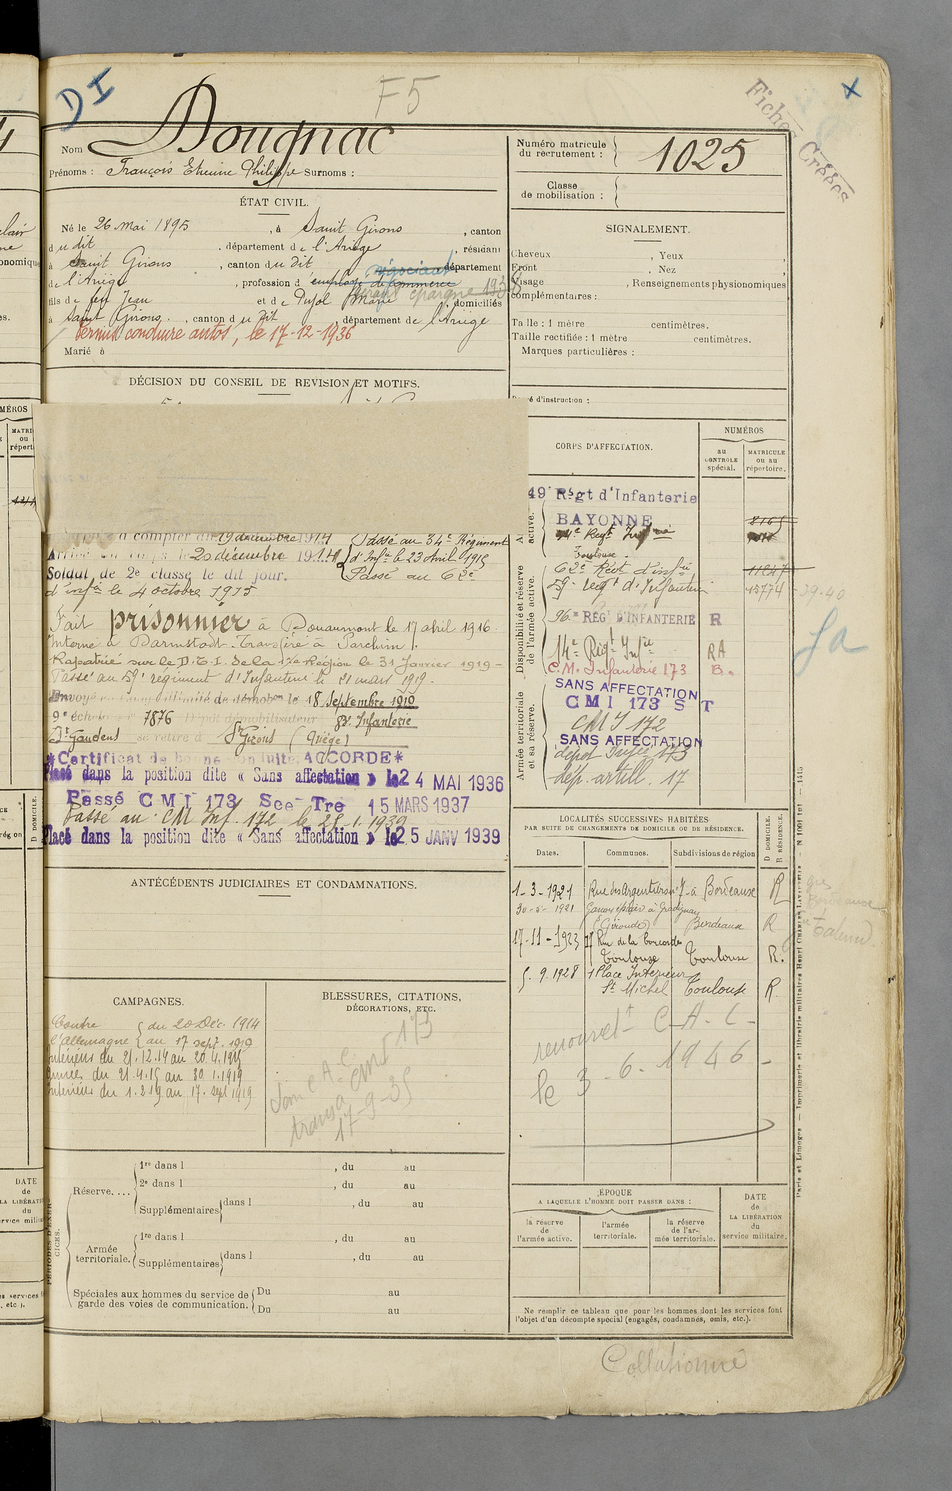 DI
F5
Fiches Créées
Nom Dougnac
Prénoms : François Etienne Philippe Surnoms :
Numéro matricule du recrutement : 1025
Classe de mobilisation :
ÉTAT CIVIL.
Né le 26 mai 1895, à Saint Girons, canton
du dit, département de l'Ariège, résidant
à Saint Girons, canton du dit département
de l'Ariège, profession d'employé de commerce négociant
fils de feu Jean et de Pujol Marie, domiciliés
à Saint Girons, canton du dit, département de l'Ariège
Permis conduire autos, le 17-12-1936
Marié à
SIGNALEMENT.
Cheveux , Yeux
Front , Nez
Visage , Renseignements physionomiques
complémentaires :
Taille : 1 mètre centimètres.
Taille rectifiée : 1 mètre centimètres.
Marques particulières :
d'instruction :
DÉCISION DU CONSEIL DE REVISION ET MOTIFS.
à compter du 19 décembre 1914
20 décembre 1914
Soldat de 2e classe le dit jour.
Passé au 34e Régiment
d'Infie le 23 Avril 1915
Passé au 62e
d'infie le 4 octobre 1915
Fait prisonnier à Douaumont le 17 avril 1916
Interné à Darmstadt. Transféré à Parchim.
Rapatrié sur le D.T.I. de la 17e Région le 31 Janvier 1919-
Passé au 59e régiment d'Infanterie le 21 mars 1919-
le 18 Septembre 1919
9e échelon 7876 Dépôt démobilisateur Infanterie
St Gaudens se retire à St Girons (Ariège)
*Certificat de bonne conduite ACCORDÉ*
Placé dans la position dite « Sans affectation » le 24 MAI 1936
Passé CMI 173 Sce Tre 15 MARS 1937
Passé au CM Inf. 172 le 25.1.1939
Placé dans la position dite « Sans affectation » le 25 JANV 1939
CORPS D'AFFECTATION.
NUMÉROS
au CONTROLE spécial.
MATRICULE ou au répertoire.
Disponibilité et réserve de l'armée active.
Armée territoriale et sa réserve.
49e Régt d'Infanterie
BAYONNE
62e Régt d'infie
59e régt d'Infanterie 15774
96e RÉGt D'INFANTERIE R
14e Régt Infie RA
C.M. Infanterie 173 B.
SANS AFFECTATION
CMI 173 S T
CMI 172
SANS AFFECTATION
dépot Infie 173
dép. artill. 17
LOCALITÉS SUCCESSIVES HABITÉES
PAR SUITE DE CHANGEMENTS DE DOMICILE OU DE RÉSIDENCE.
D DOMICILE.
R RÉSIDENCE.
Dates. Communes. Subdivisions de région
1-3-1921 à Bordeaux R
30-5-1921 à Gradignan
(Gironde) Bordeaux R
17-11-1923 Rue de la Concorde
Toulouse Toulouse R.
5.9.1928 1 Place Intérieure
St Michel Toulouse R.
renouvelt C.A.C.
le 3-6-1946-
ANTÉCÉDENTS JUDICIAIRES ET CONDAMNATIONS.
CAMPAGNES.
Contre l'allemagne du 20 Déc. 1914
au 17 sept. 1919
Intérieur du 21.12.14 au 20.4.1915
Armées du 21.4.15 au 30.1.1919
Intérieur du 1.2.19 au 17. sept 1919
BLESSURES, CITATIONS,
DÉCORATIONS, ETC.
17-9-35
Réserve....
1re dans l , du au
2e dans l , du au
Supplémentaires dans l , du au
Armée territoriale.
1re dans l , du au
Supplémentaires dans l , du au
Spéciales aux hommes du service de garde des voies de communication.
Du au
Du au
PÉRIODES D'EXERCICES.
ÉPOQUE
A LAQUELLE L'HOMME DOIT PASSER DANS :
la réserve de l'armée active.
l'armée territoriale.
la réserve de l'armée territoriale.
DATE de LA LIBÉRATION du service militaire.
Ne remplir ce tableau que pour les hommes dont les services font
l'objet d'un décompte spécial (engagés, condamnés, omis, etc.).
Collationné
Paris et Limoges — Imprimerie et librairie militaires Henri CHARLES-LAVAUZELLE